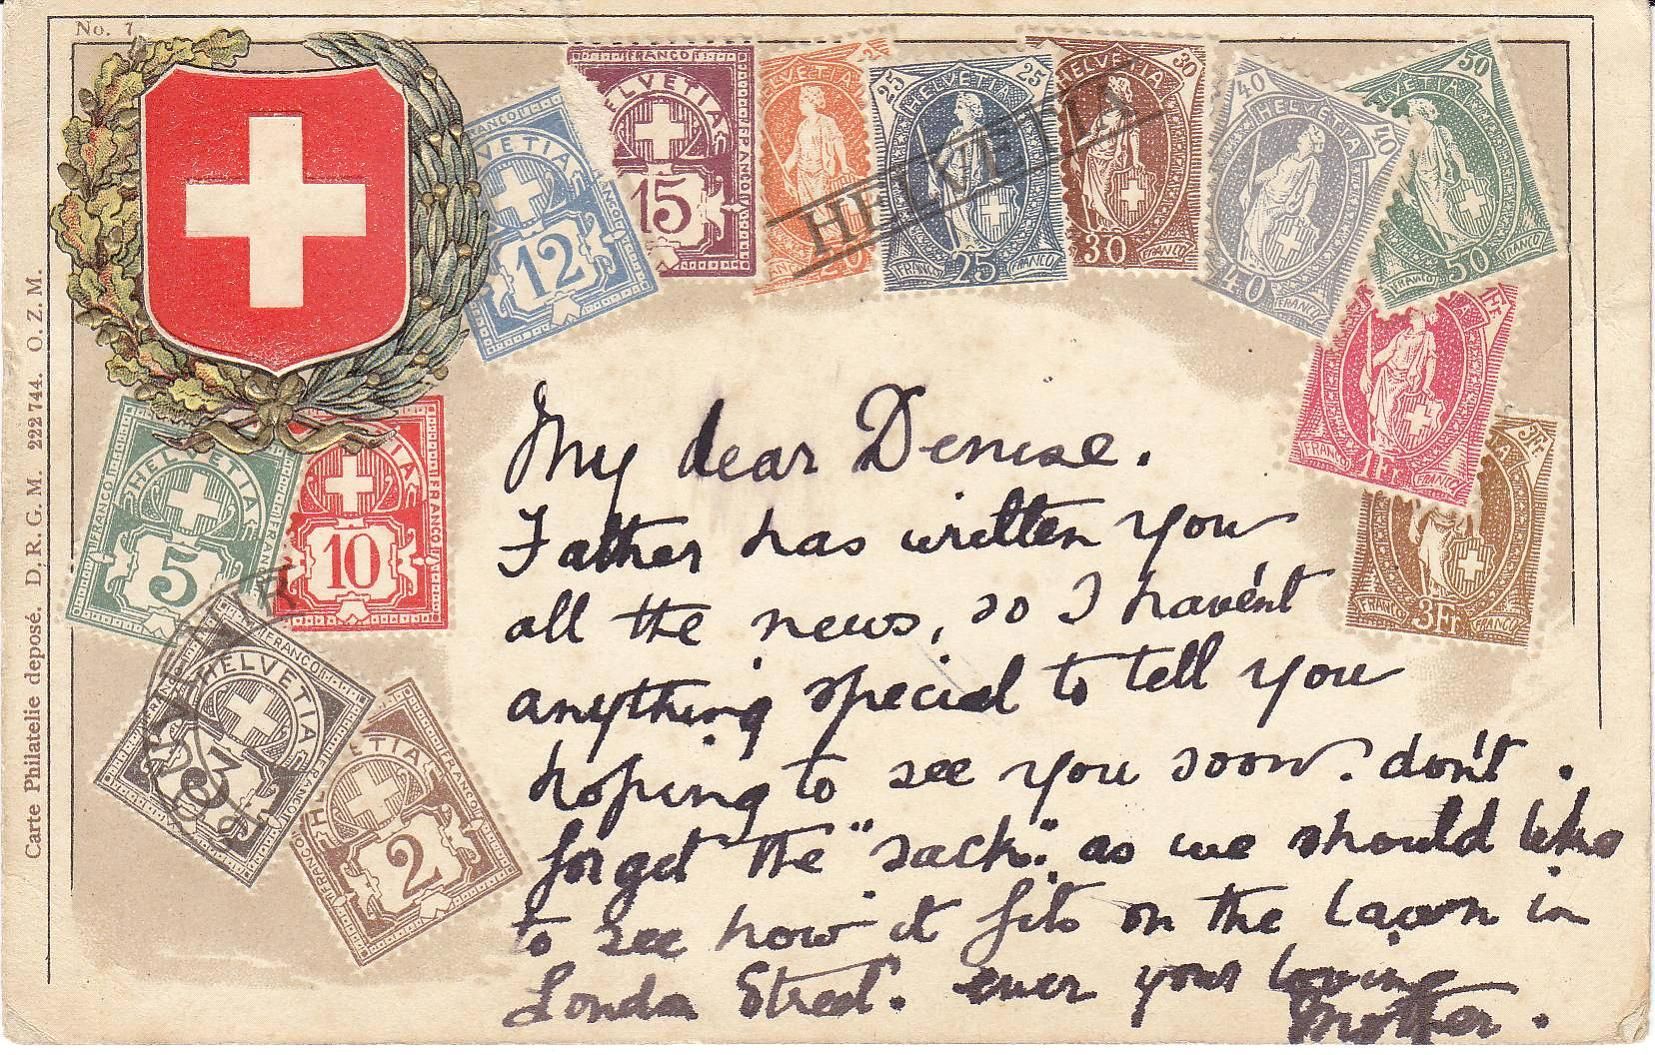 No. 7
Carte Philatelie deposé. D. R. G. M. 222744. O. Z. M.
FRANCO
HELVETIA
12
FRANCO
HELVETIA
FRANCO
15
HELVETIA
25 25
HELVETIA
FRANCO 25 FRANCO
HELVETIA
30
HELVETIA
30 FRANCO
40 40
HELVETIA
40 FRANCO
50
HELVETIA
FRANCO 50 FRANCO
1Fr
FRANCO 1Fr FRANCO
3Fr
FRANCO 3Fr FRANCO
HELVETIA
FRANCO
FRANCO
5
FRANCO
10
FRANCO
HELVETIA
FRANCO
3
FRANCO
FRANCO
2
My dear Denise.
Father has written you
all the news, so I have'nt
anything special to tell you
hoping to see you soon. don't
forget the "sack". as we should like
to see how it fits on the lawn in
London Street. ever your loving
Mother.